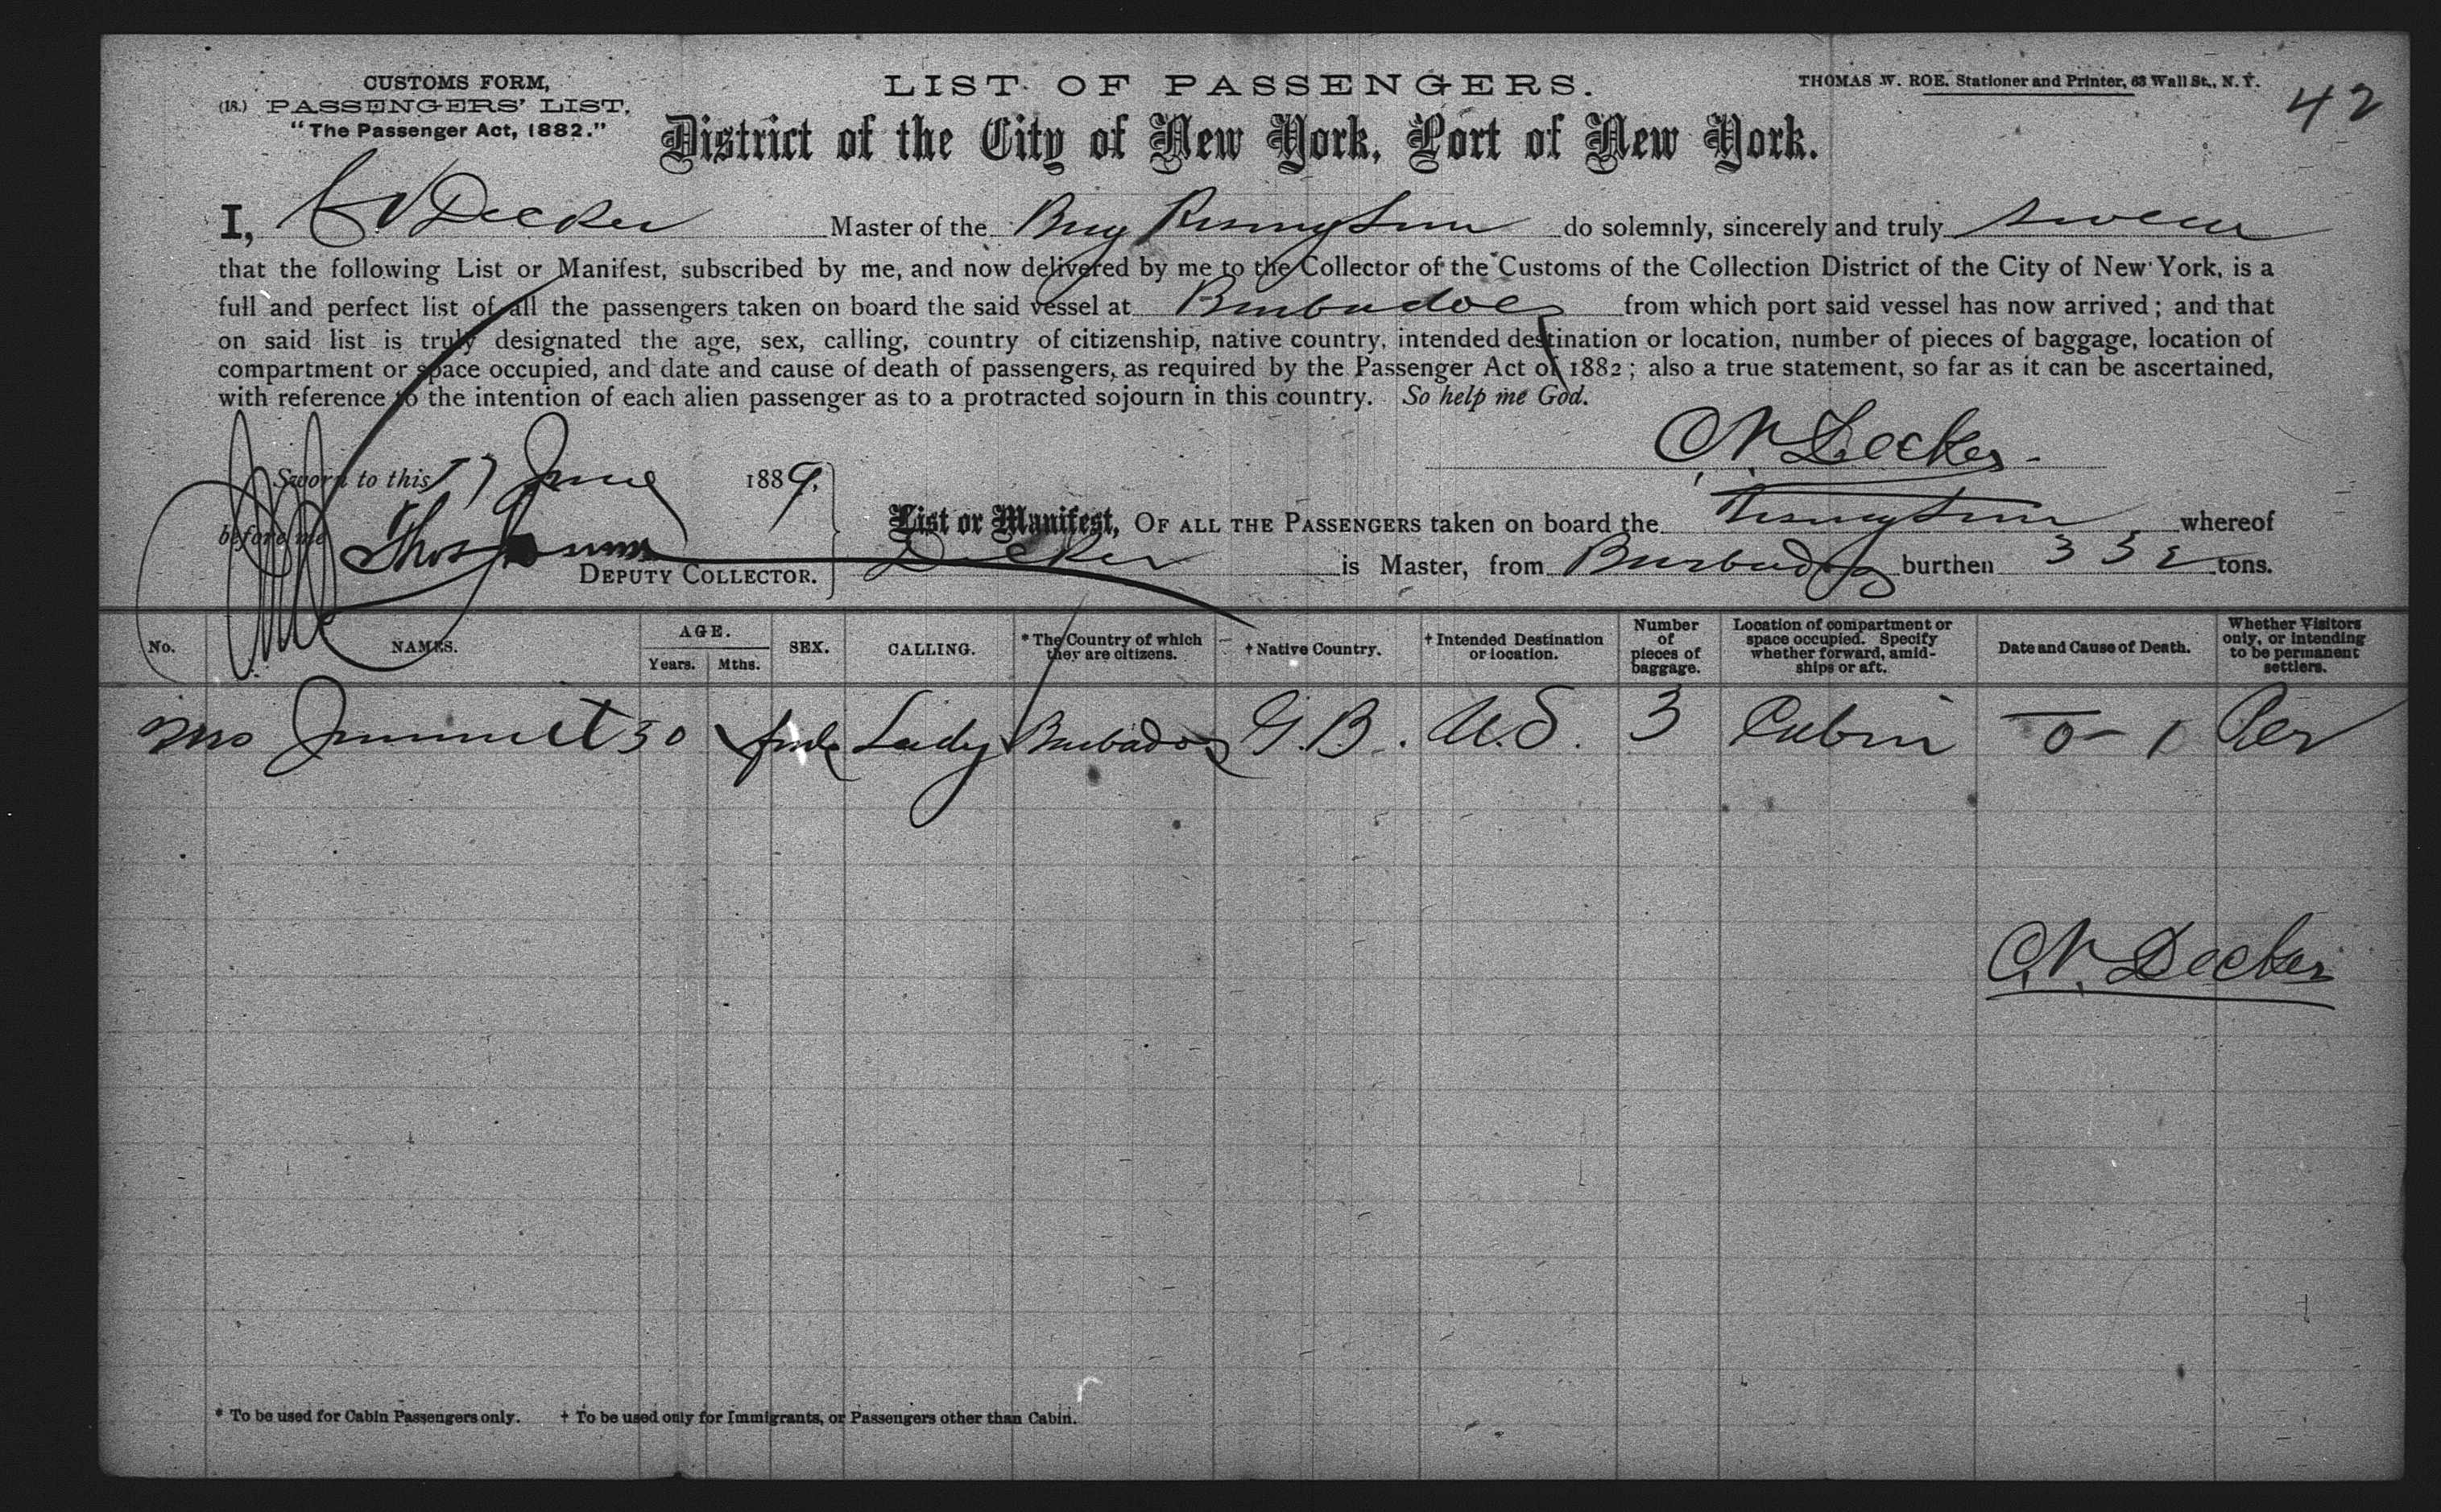 CUSTOMS FORM,
(18.) PASSENGERS' LIST,
"The Passenger Act, 1882."
LIST OF PASSENGERS.
THOMAS W. ROE, Stationer and Printer, 63 Wall St., N. Y.
42
District of the City of New York, Port of New York.
I, C N Decker Master of the Brig Rising Sun do solemnly, sincerely and truly swear
that the following List or Manifest, subscribed by me, and now delivered by me to the Collector of the Customs of the Collection District of the City of New York, is a
full and perfect list of all the passengers taken on board the said vessel at Barbadoes from which port said vessel has now arrived; and that
on said list is truly designated the age, sex, calling, country of citizenship, native country, intended destination or location, number of pieces of baggage, location of
compartment or space occupied, and date and cause of death of passengers, as required by the Passenger Act of 1882; also a true statement, so far as it can be ascertained,
with reference to the intention of each alien passenger as to a protracted sojourn in this country. So help me God.
C. N. Decker
Sworn to this 17 June 1889,
before me Thos
DEPUTY COLLECTOR.
List or Manifest, OF ALL THE PASSENGERS taken on board the Rising Sun whereof
Decker is Master, from Barbados burthen tons.
No. NAMES. AGE. Years. Mths. SEX. CALLING. * The Country of which they are citizens. † Native Country. † Intended Destination or location. Number of pieces of baggage. Location of compartment or space occupied. Specify whether forward, amidships or aft. Date and Cause of Death. Whether Visitors only, or intending to be permanent settlers.
Mrs 30 fmle Lady Barbados G. B. U. S. 3 Cabin 0 Per
C. N. Decker
* To be used for Cabin Passengers only. † To be used only for Immigrants, or Passengers other than Cabin.